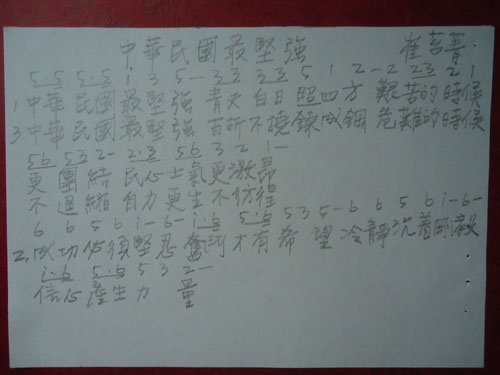 中華民國最堅強 崔苔菁
5·5 5·5 1 3 5- 3 3 3 3 5 1 2-2 23 2 1
1.中華 民國 最堅強 青天白日照四方 艱苦的時候
3.中華民國最堅強 百折不撓鍊成鋼 危難的時候
56 53 2- 2·3 56 3 2 1-
更團結 民心士氣更激昂
不退縮 自力更生不彷徨
6 6 5 6 i-6- i·6 5·6 5 3 5-6 6 5 6 i-6-
2.成功必須堅忍奮鬥才有希望冷靜沉着剛毅
i·6 5·6 5 3 2-
信心產生力量